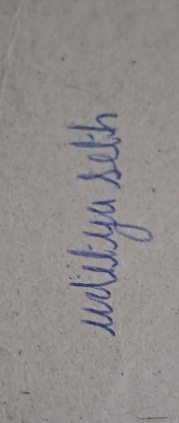 aditya seth